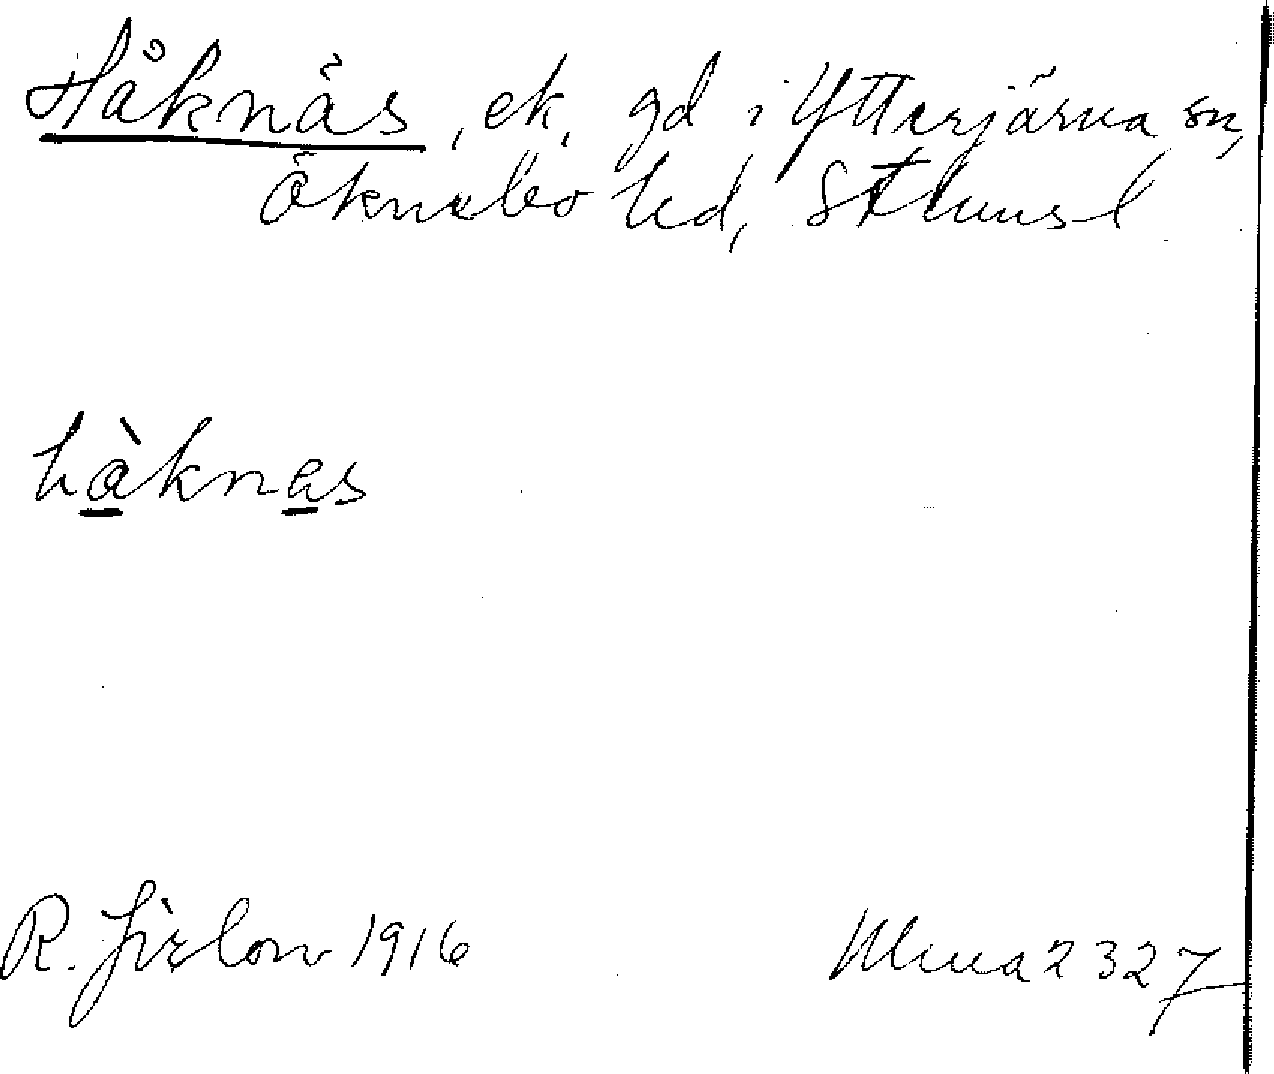 Håknäs, ek. gd i Ytterjärna sn,
Öknebo hd, Sthms l
hàknas
R. Jirlow 1916
Ulma 2327